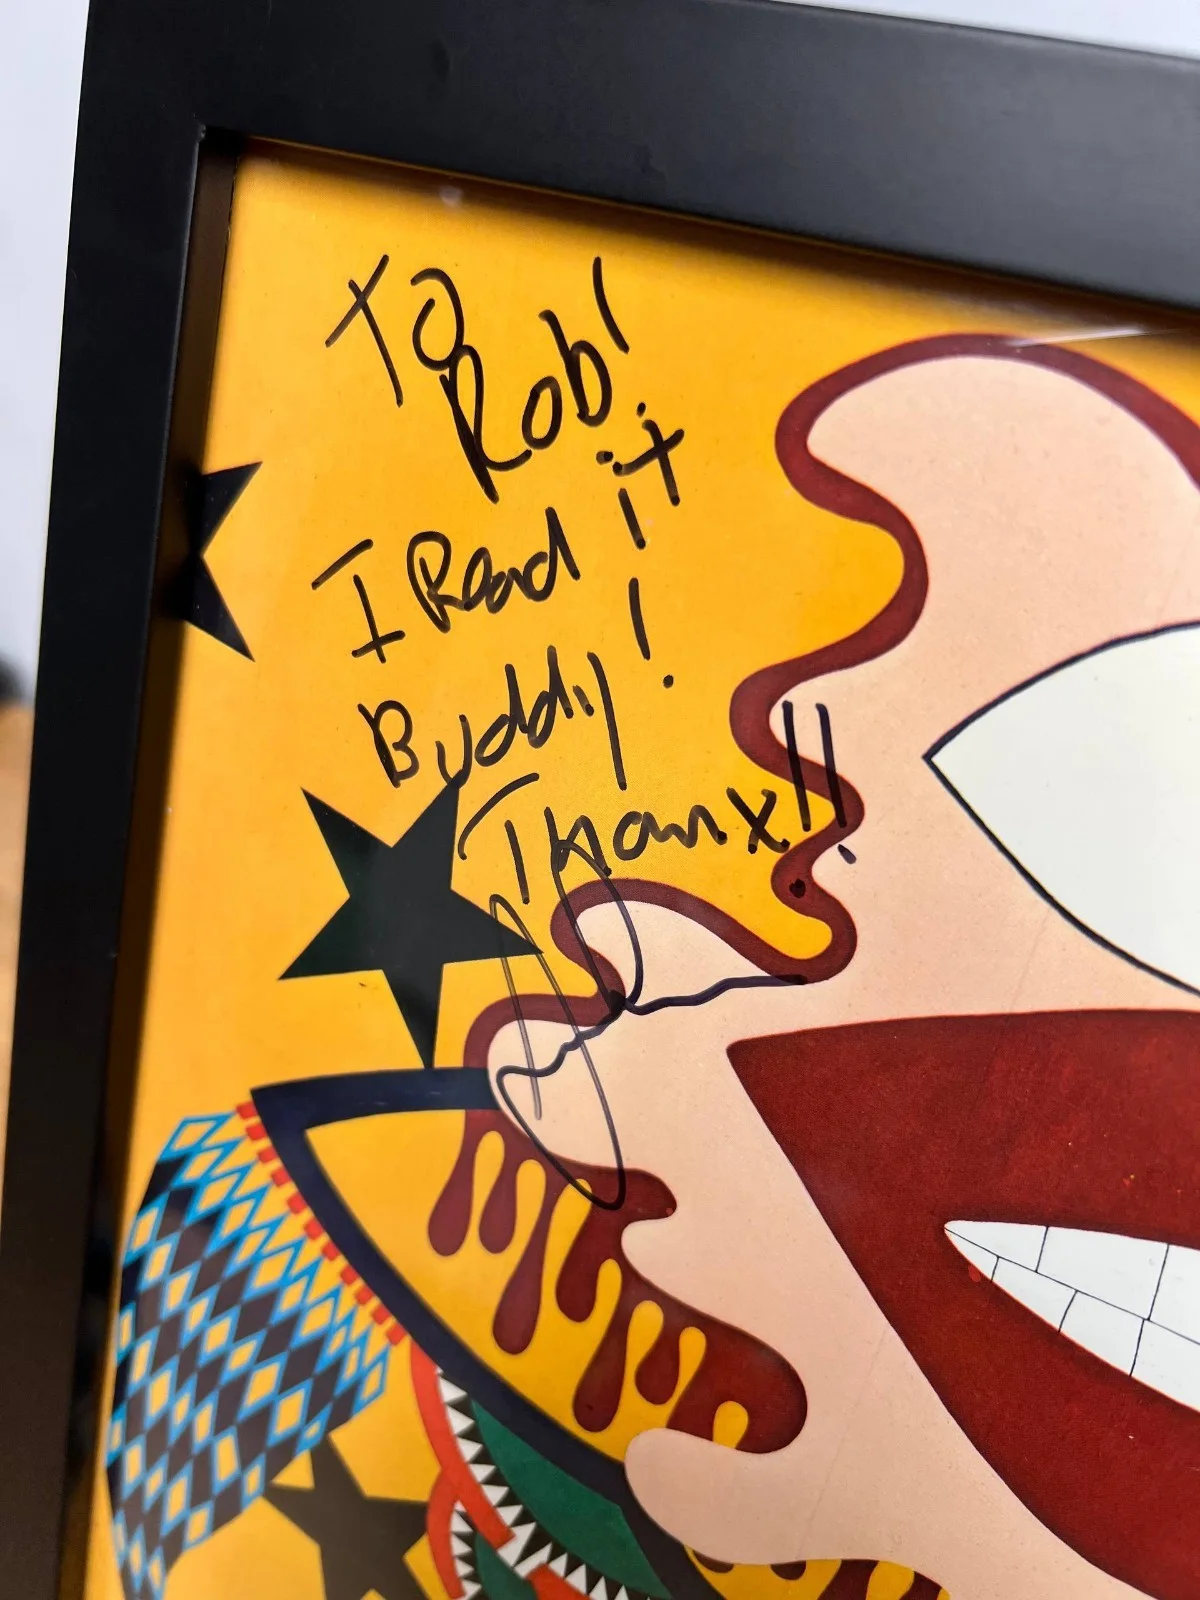 To
Rob!
I Read it!
Buddy!
Thanx!!